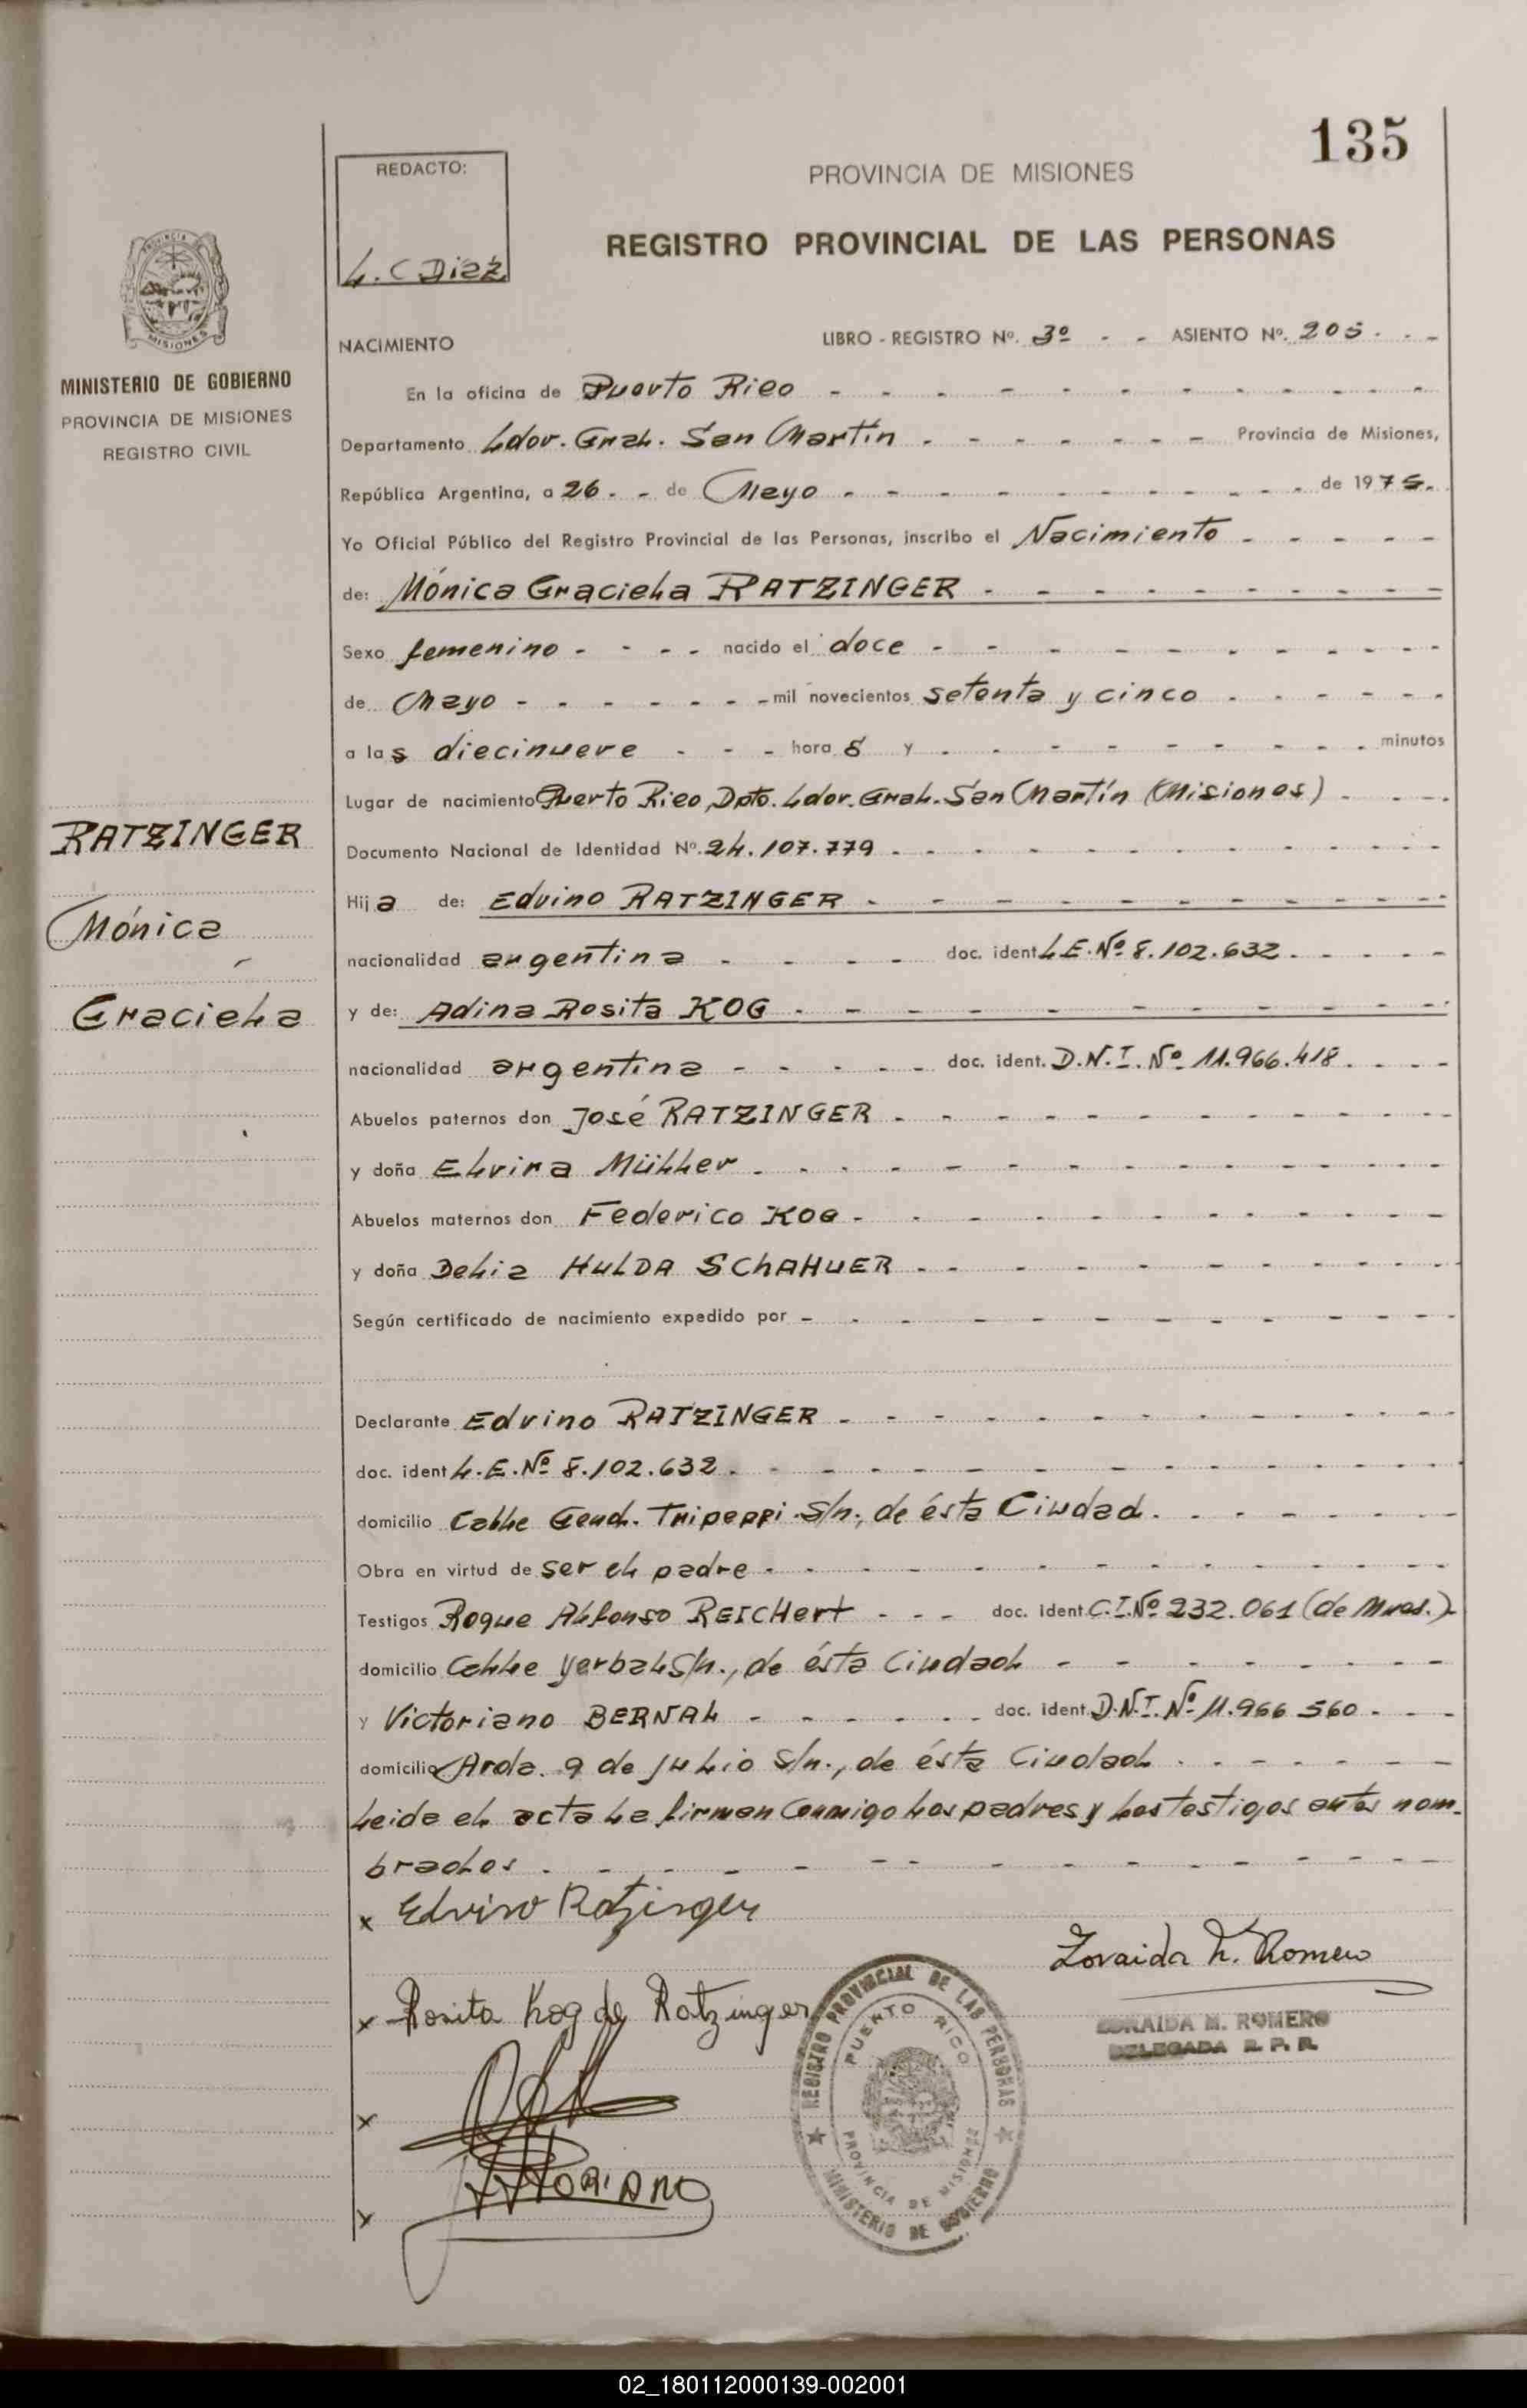 135
REDACTO:
L. C Diaz
PROVINCIA DE MISIONES
REGISTRO PROVINCIAL DE LAS PERSONAS
PROVINCIA DE
MISIONES
MINISTERIO DE GOBIERNO
PROVINCIA DE MISIONES
REGISTRO CIVIL
NACIMIENTO LIBRO - REGISTRO Nº. 3º - - ASIENTO Nº. 205 - - -
En la oficina de Puerto Rico
Departamento Ldor. Gral. San Martín Provincia de Misiones,
República Argentina, a 26 - - de Mayo de 1975.
Yo Oficial Público del Registro Provincial de las Personas, inscribo el Nacimiento
de: Mónica Graciela RATZINGER
Sexo femenino nacido el doce
de Mayo mil novecientos setenta y cinco
a las diecinueve hora s y minutos
Lugar de nacimiento Puerto Rico, Dpto. Ldor. Gral. San Martín (Misiones)
Documento Nacional de Identidad Nº. 24.107.779
Hija de: Edvino RATZINGER
nacionalidad argentina doc. ident L.E. Nº 8.102.632
y de: Adina Rosita KOG
nacionalidad argentina doc. ident. D.N.I. Nº 11.966.418
Abuelos paternos don José RATZINGER
y doña Elvira Müller
Abuelos maternos don Federico KOG
y doña Delia HULDA SCHAHUER
Según certificado de nacimiento expedido por
Declarante Edvino RATZINGER
doc. ident L.E. Nº 8.102.632
domicilio Calle Gend. Tripeppi S/n., de ésta Ciudad.
Obra en virtud de ser el padre
Testigos Roque Alfonso REICHert doc. ident C.I. Nº 232.061 (de Mnes.)
domicilio Calle Yerbal S/n., de ésta Ciudad
y Victoriano BERNAL doc. ident. D.N.I. Nº 11.966.560
domicilio Avda. 9 de Julio S/n., de ésta Ciudad
Leida el acta la firman Conmigo los padres y los testigos antes nom-
brados.
RATZINGER
Mónica
Graciela
x Edvino Ratzinger
Zoraida M. Romero
x Rosita Kog de Ratzinger
ZORAIDA M. ROMERO
DELEGADA R. P. R.
x
x VICTORIANO
REGISTRO PROVINCIAL DE LAS PERSONAS
PUERTO RICO
PROVINCIA DE MISIONES
MINISTERIO DE GOBIERNO
02_180112000139-002001